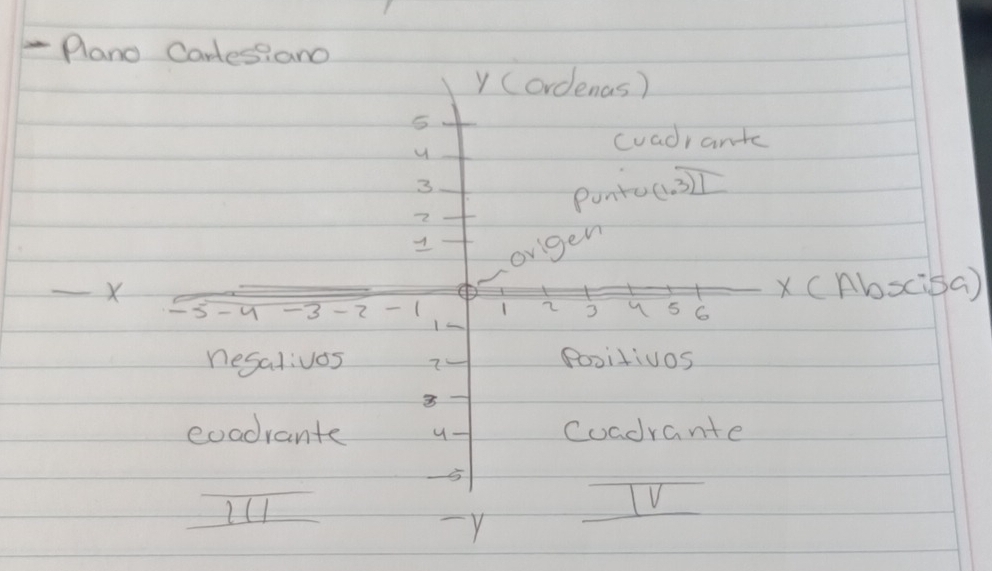 - Plano Cartesiano
Y (Ordenas)
5
4
3
2
1
Cuadrante
I
Punto (1,3)
origen
- X
X (Abscisa)
-5 -4 -3 -2 -1
1 2 3 4 5 6
1
2
3
4
-5
negativos
Positivos
cuadrante
Cuadrante
III
IV
-Y